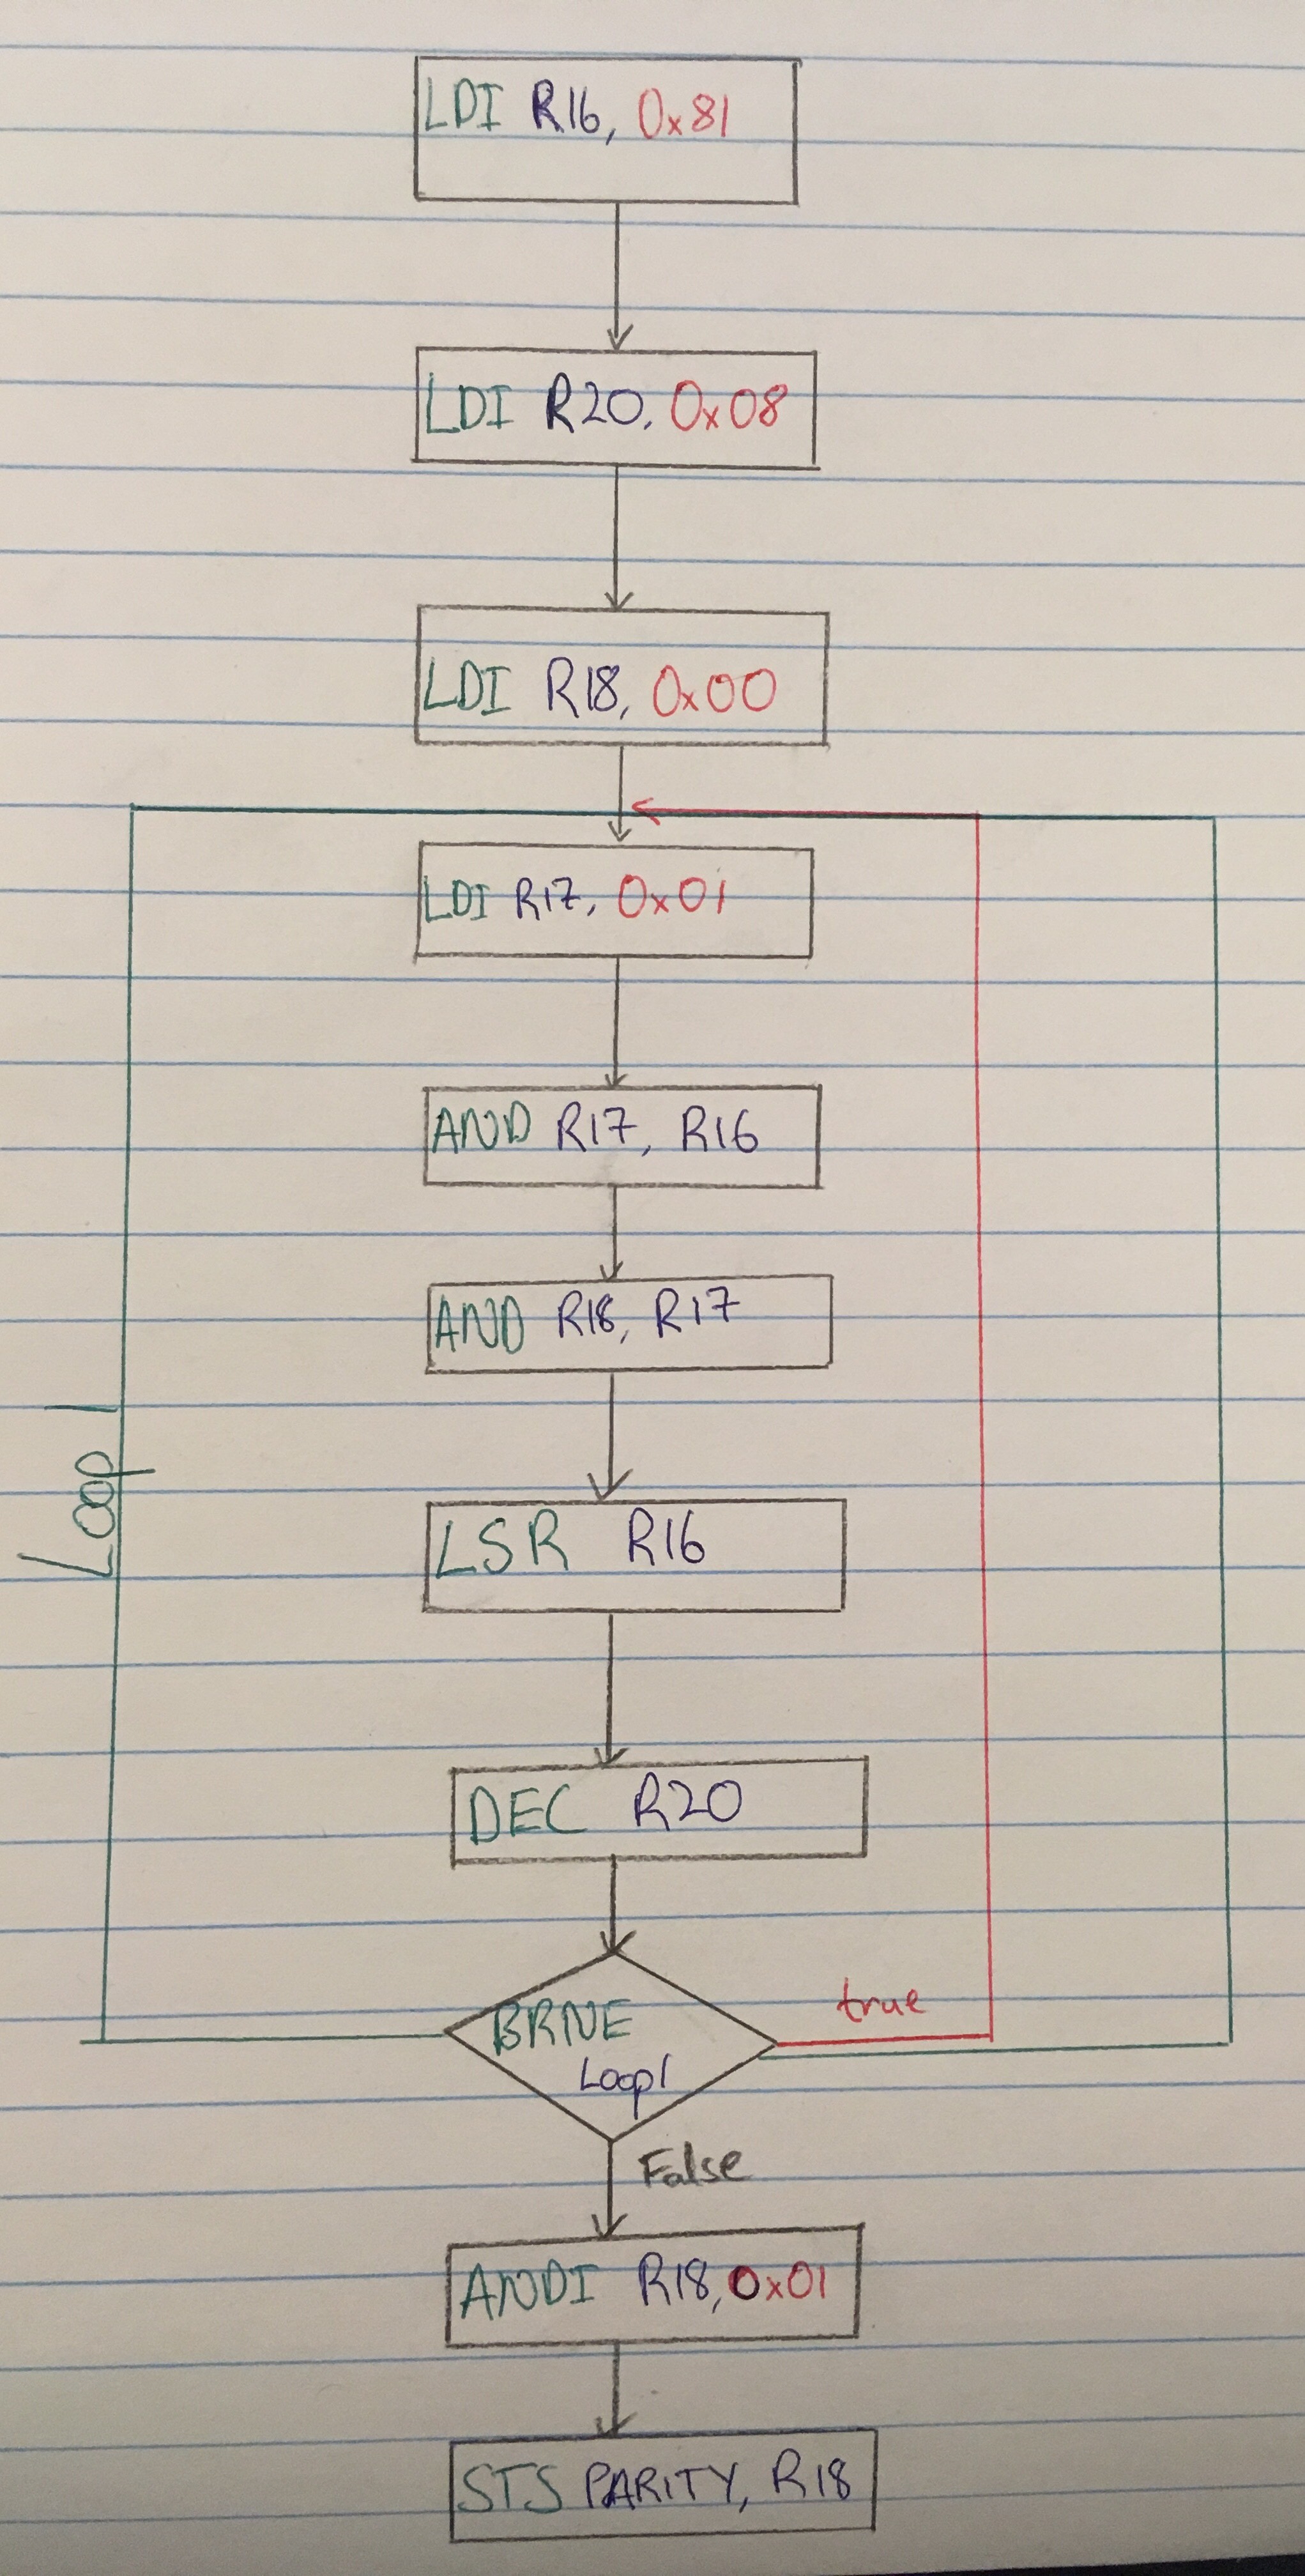 LDI R16, 0x81
LDI R20, 0x08
LDI R18, 0x00
LDI R17, 0x01
AND R17, R16
AND R18, R17
Loop 1
LSR R16
DEC R20
BRNE
Loop1
true
False
ANDI R18, 0x01
STS PARITY, R18